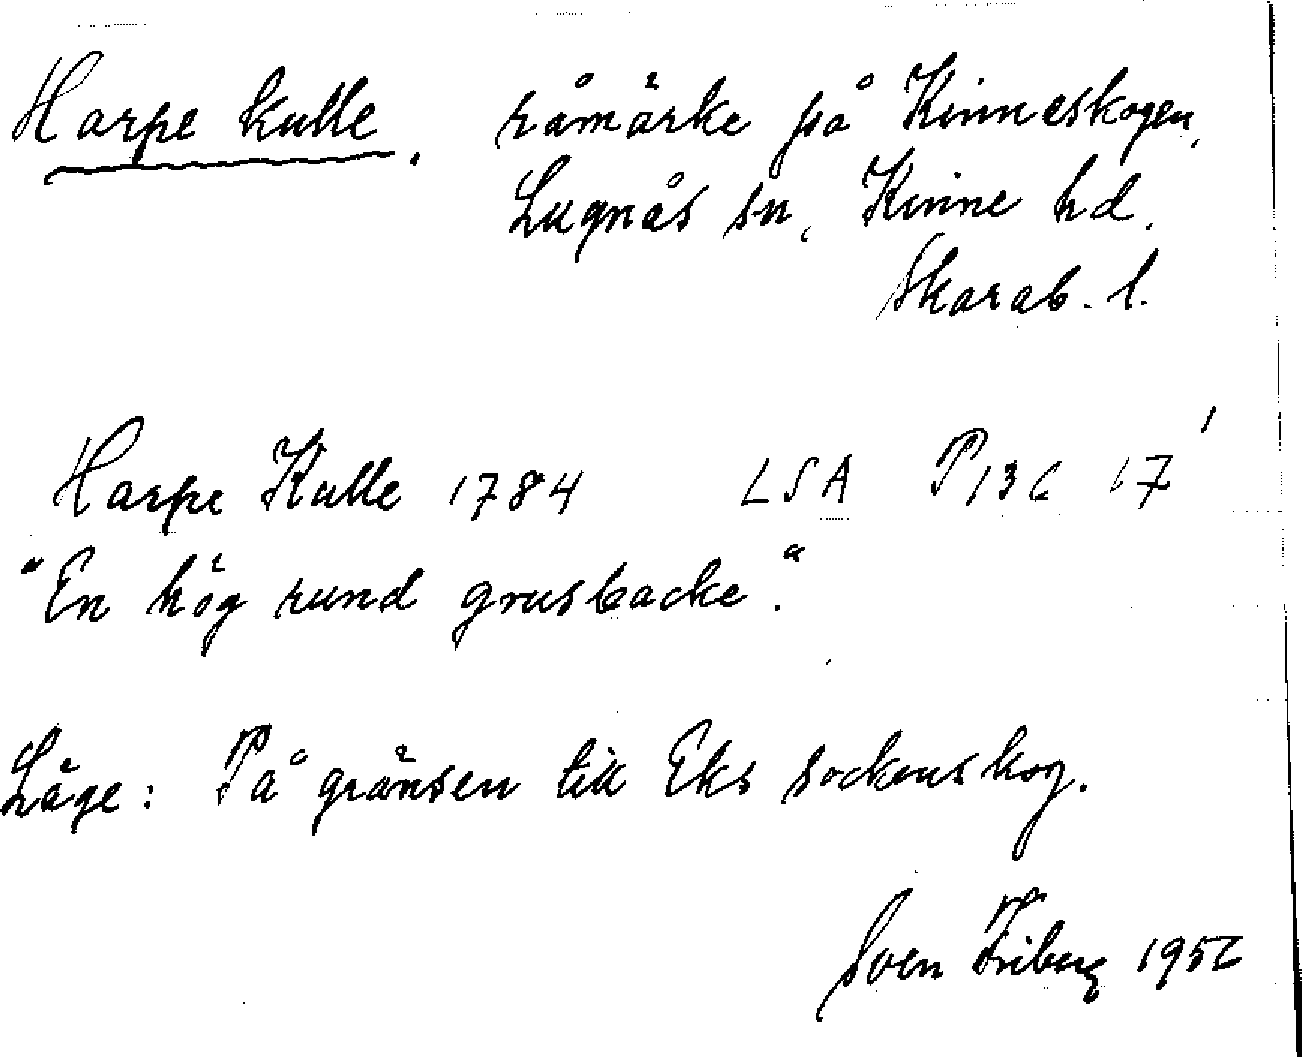 Harpe kulle, råmärke på Kinneskogen,
Lugnås sn, Kinne hd.
Skarab. l.
Harpe Kulle 1784 LSA P136 17'
"En hög rund grusbacke."
Läge: På gränsen till Eks sockenskog.
Sven Friberg 1952